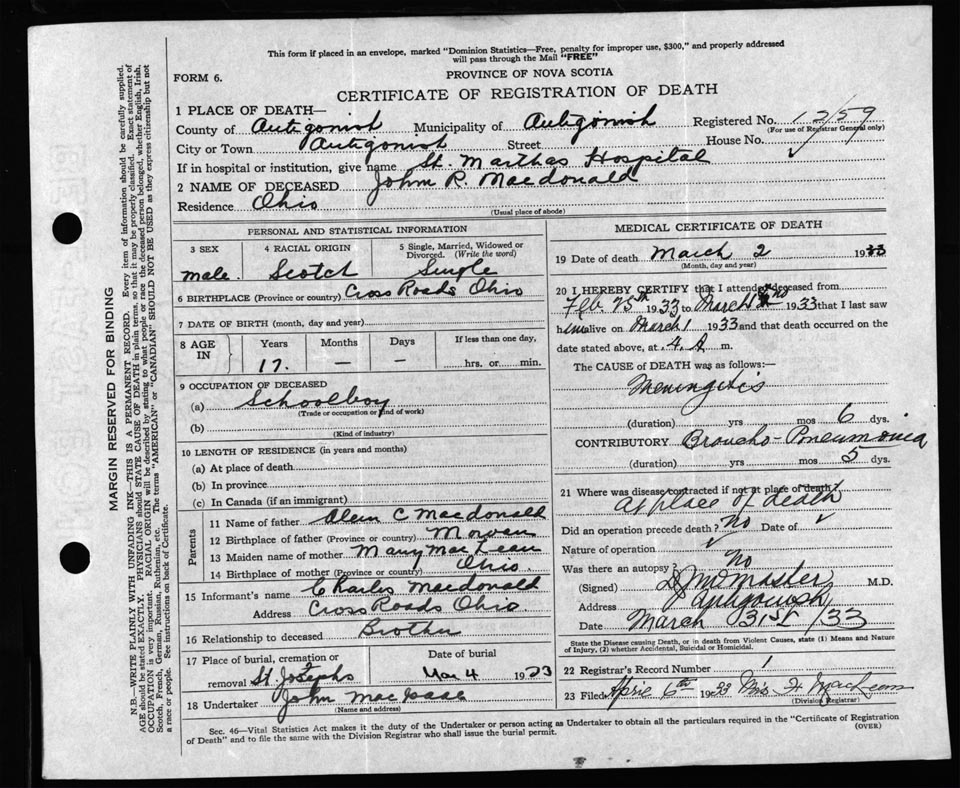 This form if placed in an envelope, marked "Dominion Statistics—Free, penalty for improper use, $300," and properly addressed
will pass through the Mail "FREE"
FORM 6.
PROVINCE OF NOVA SCOTIA
CERTIFICATE OF REGISTRATION OF DEATH
1 PLACE OF DEATH—
Registered No.
(For use of Registrar General only)
County of Antigonish Municipality of Antigonish
City or Town Antigonish Street House No.
If in hospital or institution, give name St. Marthas Hospital ✓
2 NAME OF DECEASED John R. Macdonald
Residence Ohio
(Usual place of abode)
PERSONAL AND STATISTICAL INFORMATION
3 SEX 4 RACIAL ORIGIN 5 Single, Married, Widowed or
Divorced. (Write the word)
male. Scotch Single
6 BIRTHPLACE (Province or country) Cross Roads Ohio
7 DATE OF BIRTH (month, day and year)
8 AGE IN Years Months Days If less than one day,
17. — — hrs. or min.
9 OCCUPATION OF DECEASED
(a) Schoolboy
(Trade or occupation or kind of work)
(b)
(Kind of industry)
10 LENGTH OF RESIDENCE (in years and months)
(a) At place of death
(b) In province
(c) In Canada (if an immigrant)
Parents
11 Name of father C Macdonald
12 Birthplace of father (Province or country)
13 Maiden name of mother Mary MacLean
14 Birthplace of mother (Province or country) Ohio.
15 Informant's name Charles Macdonald
Address Cross Roads Ohio
16 Relationship to deceased Brother
17 Place of burial, cremation or Date of burial
removal St. Josephs Mar 4 1933
18 Undertaker John MacIsaac
(Name and address)
MEDICAL CERTIFICATE OF DEATH
19 Date of death March 2 1933
(Month, day and year)
20 I HEREBY CERTIFY that I attended deceased from
Feb. 25th 1933 to March 2nd 1933 that I last saw
him alive on March 1 1933 and that death occurred on
date stated above, at 4. A m.
The CAUSE of DEATH was as follows:—
Meningitis
(duration) yrs mos 6 dys.
CONTRIBUTORY Broncho-Pneumonia
(duration) yrs mos 5 dys.
21 Where was disease contracted if not at place of death?
At place of death
Did an operation precede death? No Date of ✓
Nature of operation ✓
Was there an autopsy? No
(Signed) M.D.
Address Antigonish
Date March 31st /33
State the Disease causing Death, or in death from Violent Causes, state (1) Means and Nature
of Injury, (2) whether Accidental, Suicidal or Homicidal.
22 Registrar's Record Number 1
23 Filed April 6th 1933 Mrs H.
(Division Registrar)
Sec. 46—Vital Statistics Act makes it the duty of the Undertaker or person acting as Undertaker to obtain all the particulars required in the "Certificate of Registration
of Death" and to file the same with the Division Registrar who shall issue the burial permit.
(OVER)
MARGIN RESERVED FOR BINDING
N.B.—WRITE PLAINLY WITH UNFADING INK—THIS IS A PERMANENT RECORD. Every item of information should be carefully supplied.
AGE should be stated EXACTLY. PHYSICIANS should STATE CAUSE OF DEATH in plain terms, so that it may be properly classified. Exact statement of
OCCUPATION is very important. RACIAL ORIGIN will be described by stating to what people or race the deceased person belonged, whether English, Irish,
Scotch, French, German, Russian, Ruthenian, etc. The terms "AMERICAN" or "CANADIAN" SHOULD NOT BE USED as they express citizenship but not
a race or people. See instructions on back of Certificate.